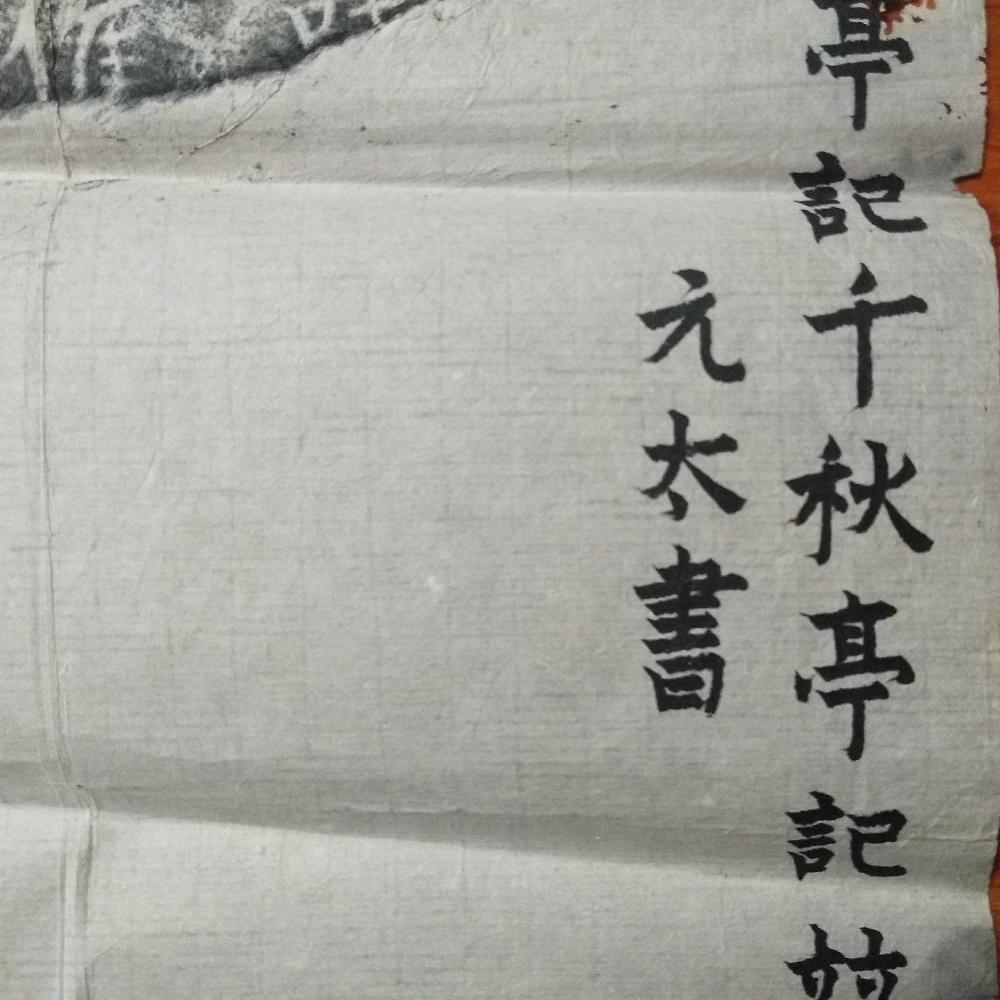 亭記千秋亭記
元太書